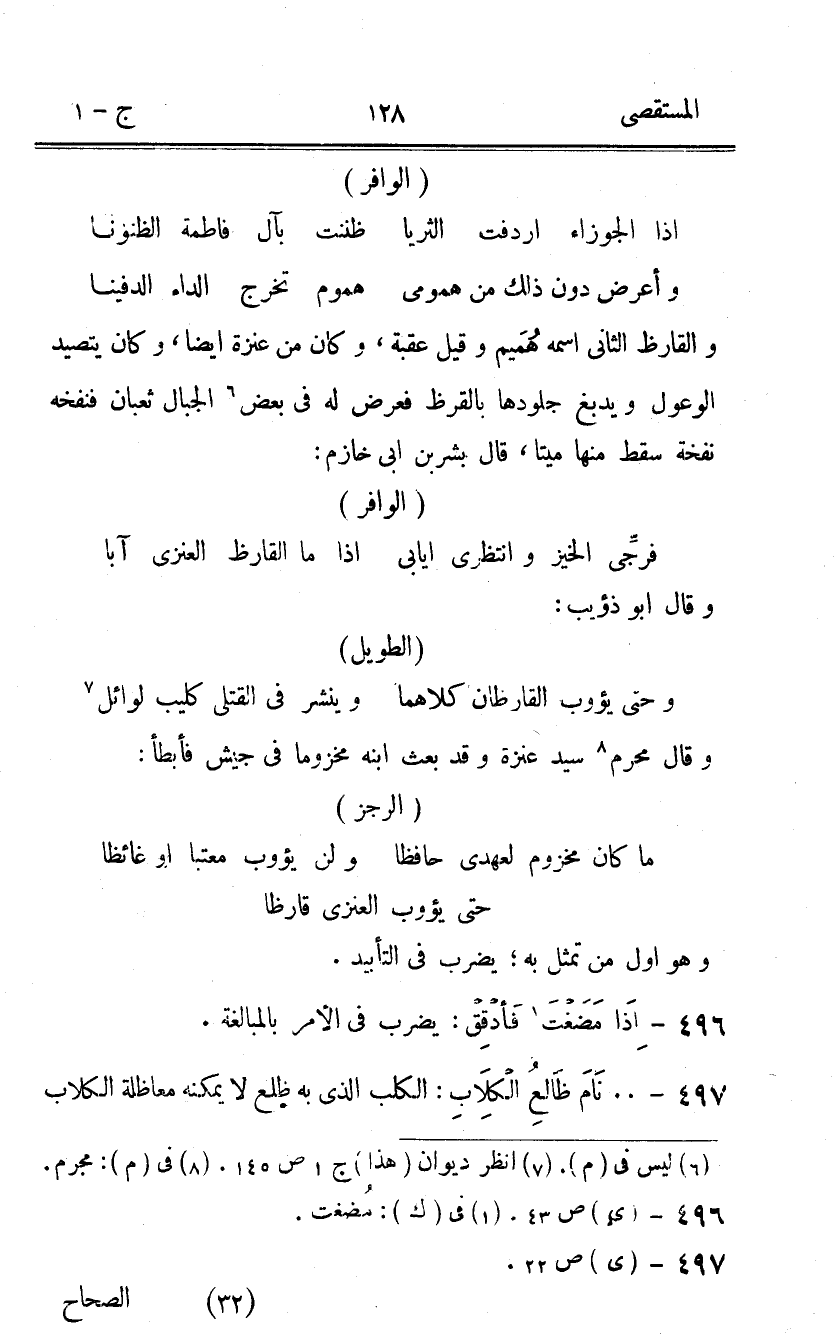 المستقصى ١٢٨ ج - ١
( الوافر )
اذا الجوزاء اردفت الثريا ظننت بآل فاطمة الظنونا
و أعرض دون ذلك من همومى هموم تخرج الداء الدفينا
و القارظ الثانى اسمه هُمَيم و قيل عقبة، و كان من عنزة ايضا، و كان يتصيد
الوعول و يدبغ جلودها بالقرظ فعرض له فى بعض٦ الجبال ثعبان فنفخه
نفخة سقط منها ميتا، قال بشر بن ابى خازم:
( الوافر )
فرجِّى الخير و انتظرى ايابى اذا ما القارظ العنزى آبا
و قال ابو ذؤيب:
(الطويل)
و حتى يؤوب القارظان كلاهما و ينشر فى القتلى كليب لوائل٧
و قال محرم٨ سيد عنزة و قد بعث ابنه مخزوما فى جيش فأبطأ:
( الرجز )
ما كان مخزوم لعهدى حافظا و لن يؤوب معتبا او غائظا
حتى يؤوب العنزى قارظا
و هو اول من تمثل به؛ يضرب فى التأبيد .
٤٩٦ - إِذَا مَضَغْتَ١ فَأَدْقِقْ: يضرب فى الأمر بالمبالغة .
٤٩٧ - ٠٠ نَامَ ظَالِعُ الْكِلَابِ: الكلب الذى به ظلع لا يمكنه معاظلة الكلاب
(٦) ليس فى (م). (٧) انظر ديوان (هذا) ج ١ ص ١٤٥ . (٨) فى (م): مجرم.
٤٩٦ - (ى) ص ٤٣ . (١) فى (ك): مُضغت .
٤٩٧ - (ى) ص ٢٢ .
(٣٢) الصحاح